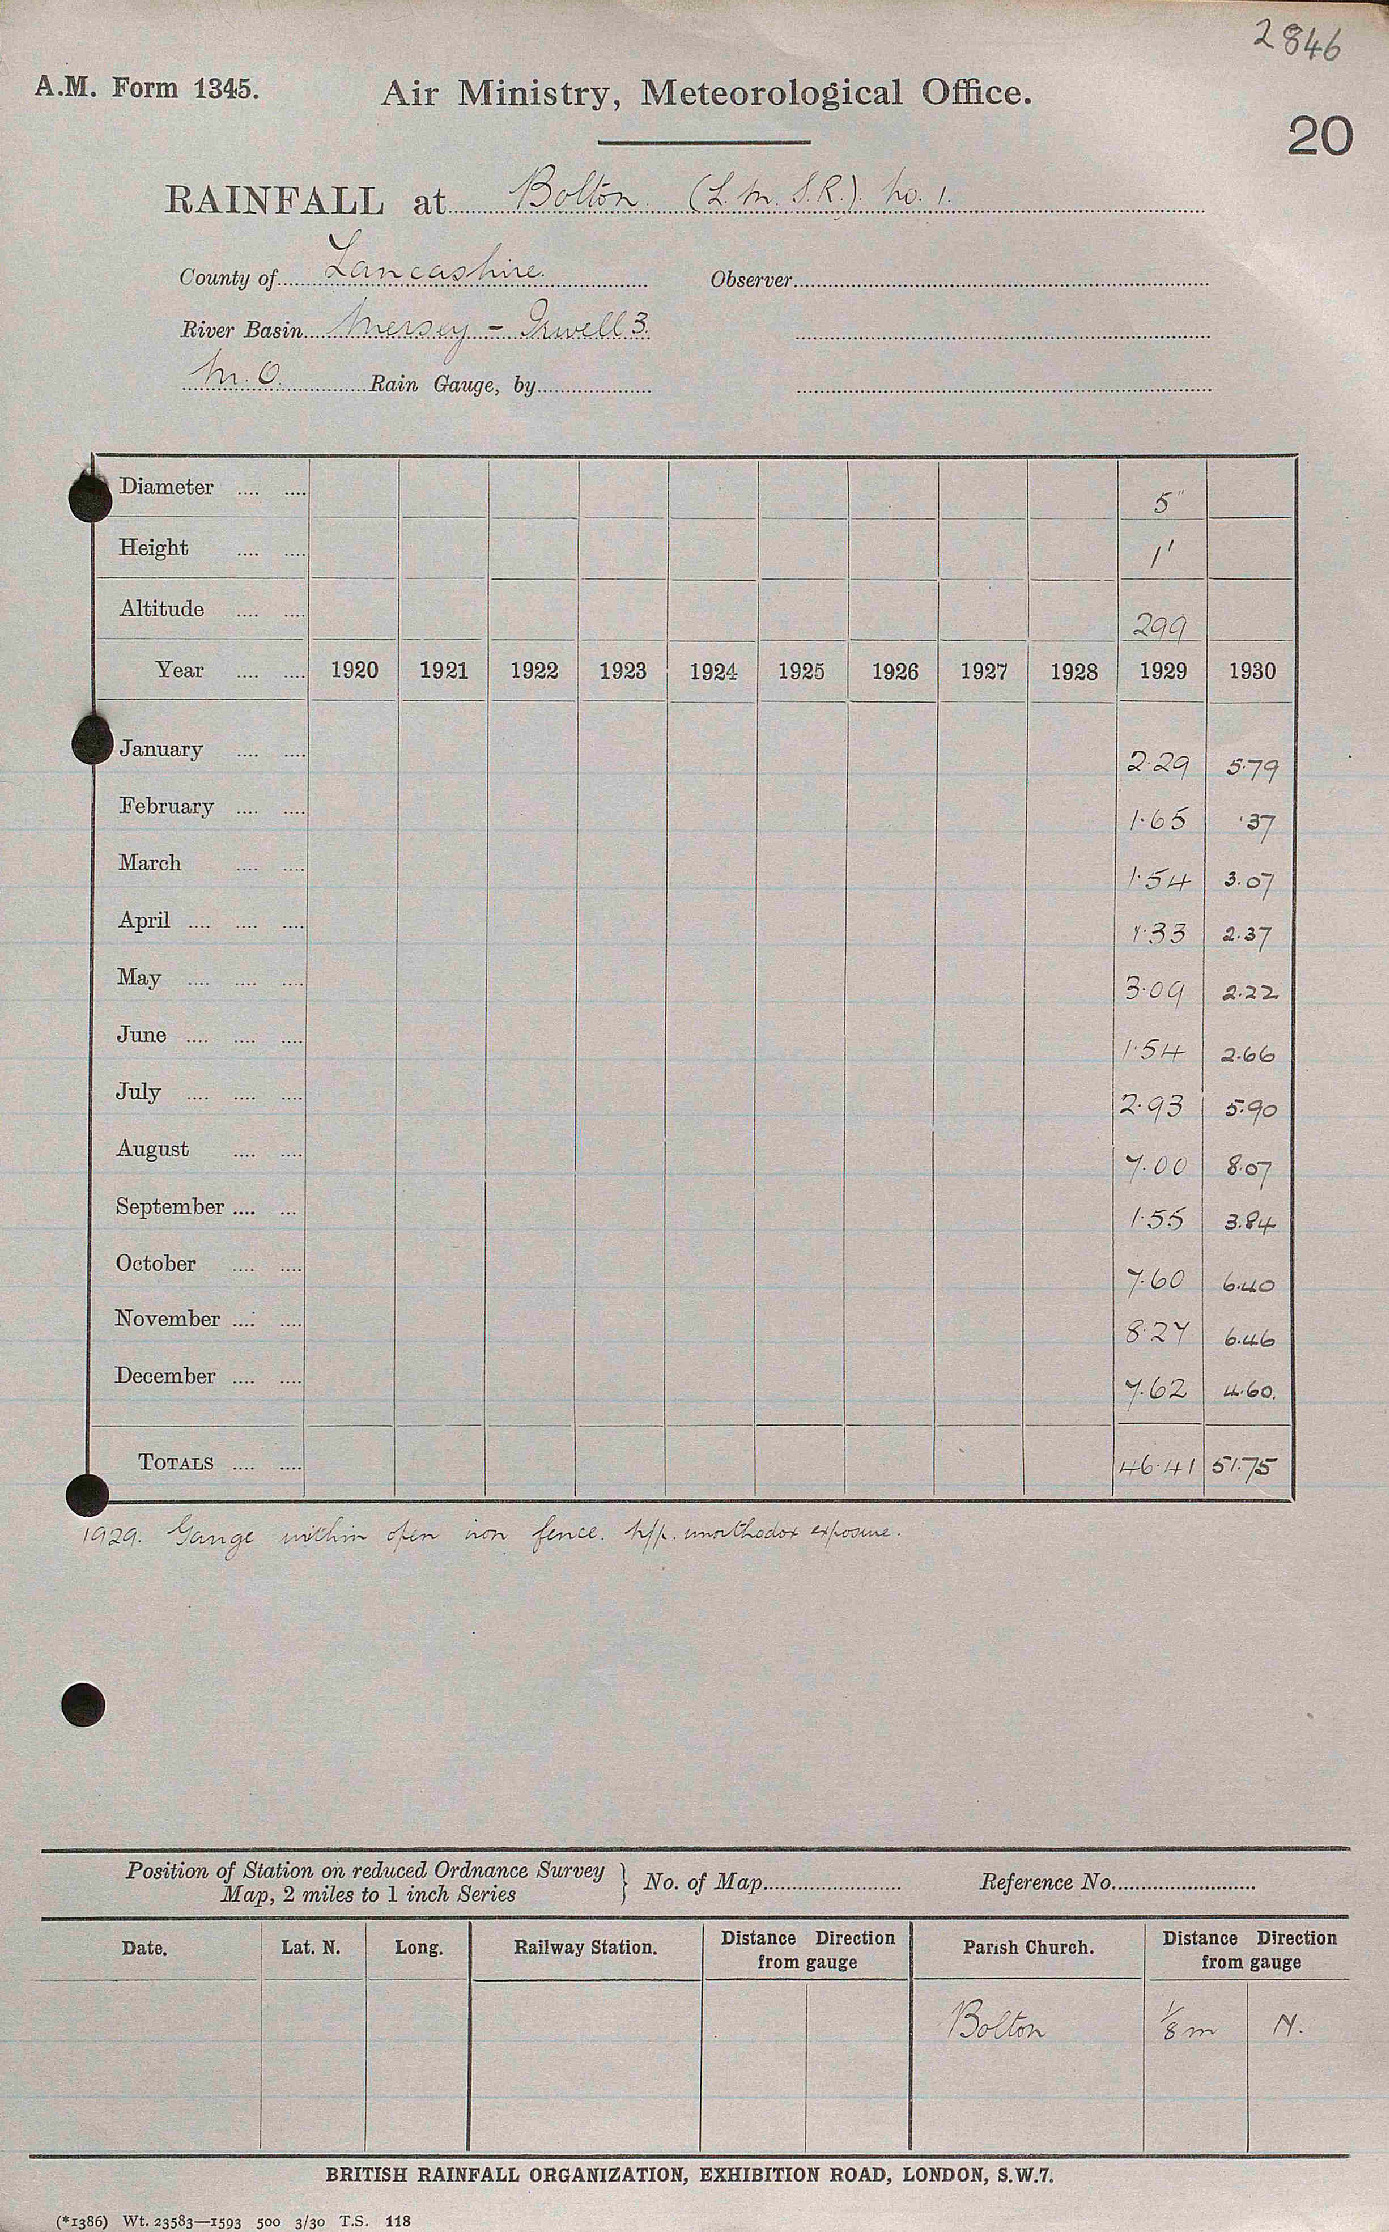 2846
A.M. Form 1345. Air Ministry, Meteorological Office.
20
RAINFALL at Bolton (L.M.S.R.). No. 1.
County of Lancashire. Observer
River Basin Mersey - Irwell 3.
M.O. Rain Gauge, by
Diameter .... .... 5"
Height .... .... 1'
Altitude .... .... 299
Year .... .... 1920 1921 1922 1923 1924 1925 1926 1927 1928 1929 1930
January .... .... 2.29 5.79
February .... .... 1.65 .37
March .... .... 1.54 3.07
April .... .... .... 1.33 2.37
May .... .... .... 3.09 2.22
June .... .... .... 1.54 2.66
July .... .... .... 2.93 5.90
August .... .... 7.00 8.07
September .... ... 1.55 3.84
October .... .... 7.60 6.40
November .... .... 8.27 6.46
December .... .... 7.62 4.60.
TOTALS .... .... 46.41 51.75
1929. Gauge within open iron fence. unorthodox exposure.
Position of Station on reduced Ordnance Survey } No. of Map Reference No.
Map, 2 miles to 1 inch Series
Date. Lat. N. Long. Railway Station. Distance Direction from gauge Parish Church. Distance Direction from gauge
Bolton 1/8 m N.
BRITISH RAINFALL ORGANIZATION, EXHIBITION ROAD, LONDON, S.W.7.
(*1386) Wt. 23583—1593 500 3/30 T.S. 118